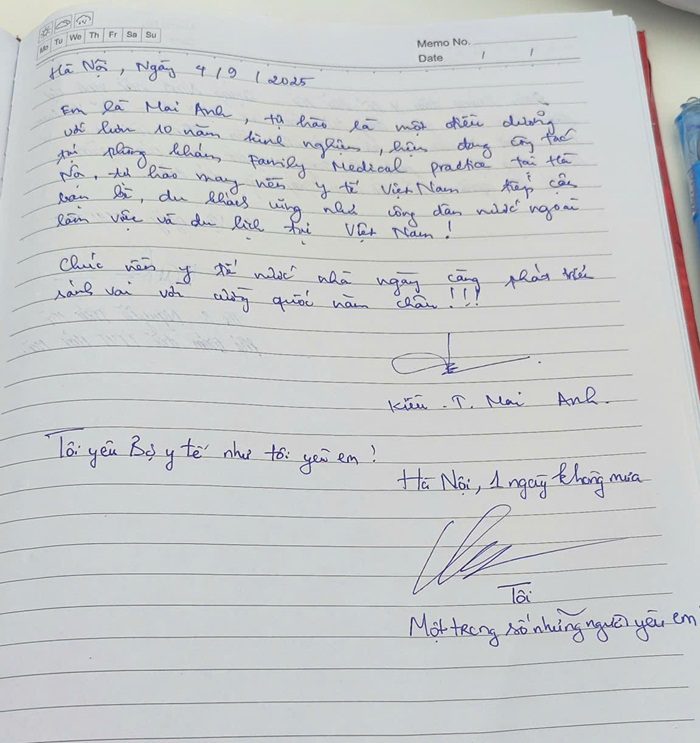 Mo Tu We Th Fr Sa Su
Memo No.
Date / /
Hà Nội, Ngày 4/9/2025
Em là Mai Anh, tự hào là một điều dưỡng
với hơn 10 năm kinh nghiệm, hiện đang công tác
tại phòng khám Family Medical practice tại Hà
Nội, tự hào mang nền y tế Việt Nam tiếp cận
bạn bè, du khách cũng như công dân nước ngoài
làm việc và du lịch tại Việt Nam!
Chúc nền y tế nước nhà ngày càng phát triển
sánh vai với cường quốc năm châu!!!
Kiều .T. Mai Anh.
Tôi yêu Bộ y tế như tôi yêu em!
Hà Nội, 1 ngày không mưa
Tôi
Một trong số những người yêu em